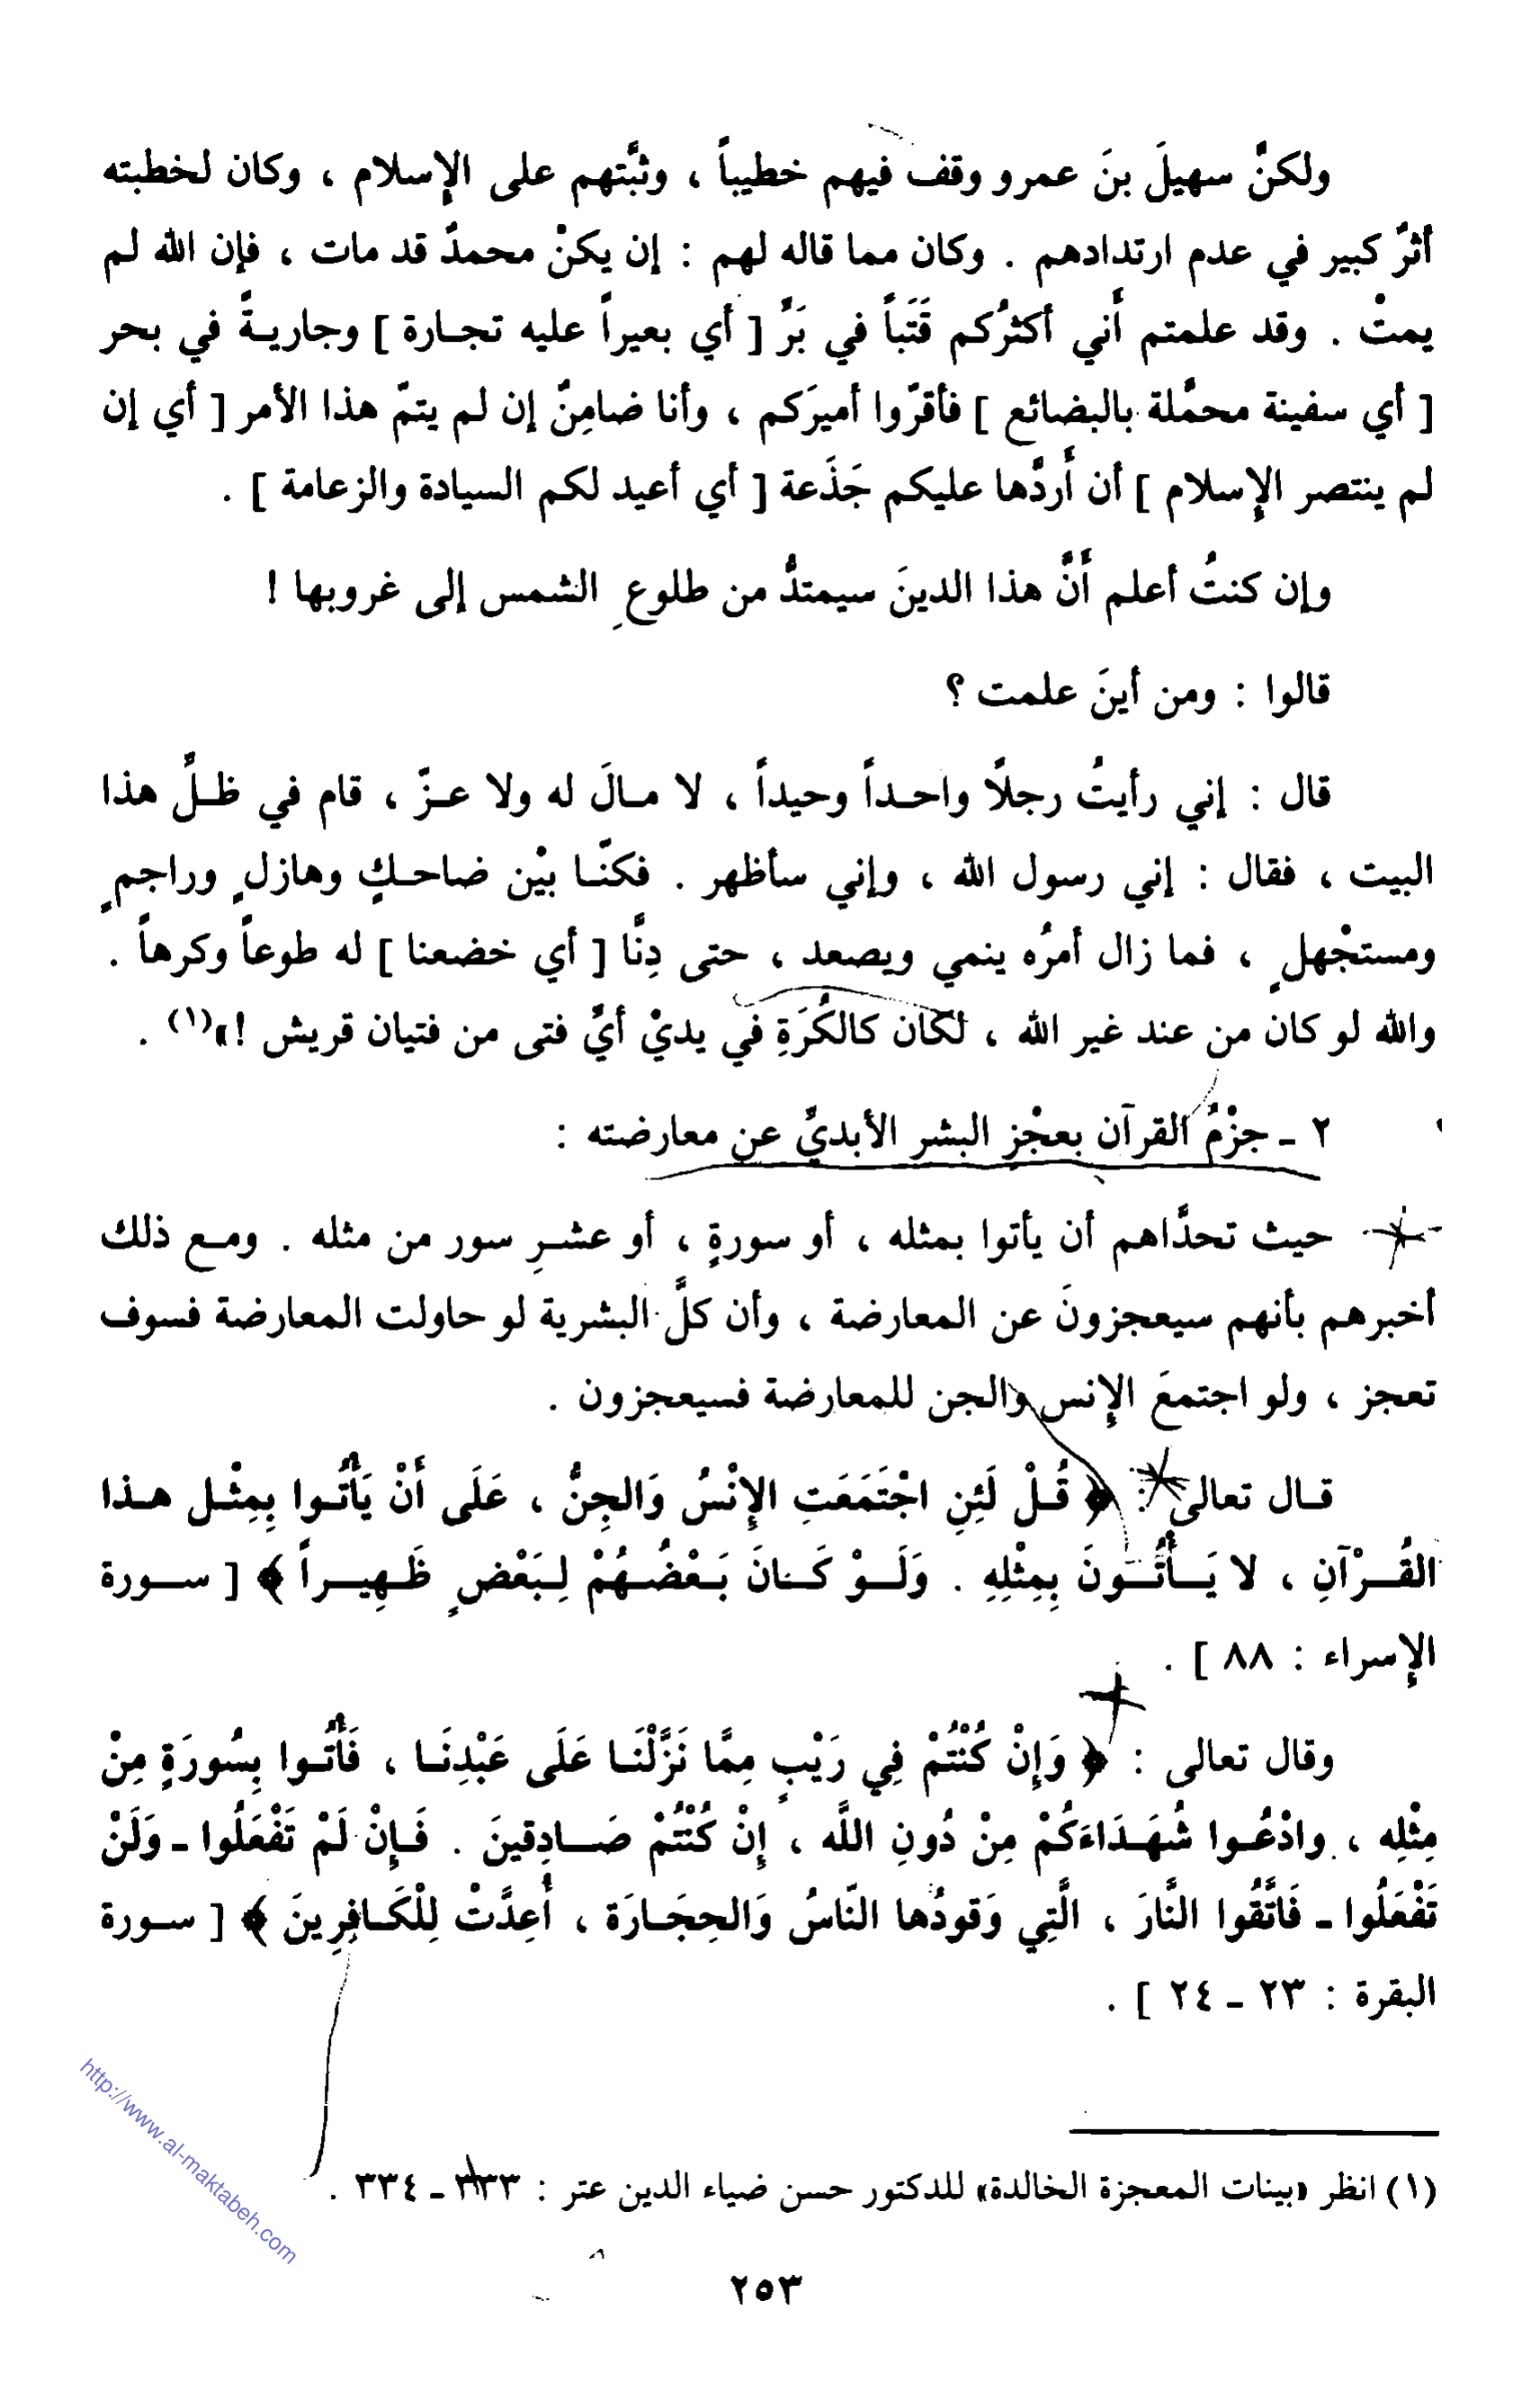 ولكنَّ سهيلَ بنَ عمرو وقف فيهم خطيباً ، وثبَّتهم على الإسلام ، وكان لخطبته
أثرٌ كبير في عدم ارتدادهم . وكان مما قاله لهم : إن يكنْ محمدٌ قد مات ، فإن الله لم
يمتْ . وقد علمتم أَني أكثرُكم قَتَباً في بَرٍّ [ أي بعيراً عليه تجـارة ] وجاريـةً في بحر
[ أي سفينة محمَّلة بالبضائع ] فأقرّوا أميرَكم ، وأنا ضامِنٌ إن لم يتمّ هذا الأمر [ أي إن
لم ينتصر الإسلام ] أن أَردَّها عليكم جَذَعة [ أي أعيد لكم السيادة والزعامة ] .
وإن كنتُ أعلم أَنَّ هذا الدينَ سيمتدُّ من طلوعِ الشمس إلى غروبها !
قالوا : ومن أينَ علمت ؟
قال : إني رأيتُ رجلاً واحـداً وحيداً ، لا مـالَ له ولا عـزّ ، قام في ظـلِّ هذا
البيت ، فقال : إني رسول الله ، وإني سأظهر . فكنّـا بيْن ضاحـكٍ وهازلٍ وراجمٍ
ومستجْهلٍ ، فما زال أمرُه ينمي ويصعد ، حتى دِنَّا [ أي خضعنا ] له طوعاً وكرهاً .
والله لو كان من عند غير الله ، لكان كالكُرَةِ في يديْ أيِّ فتى من فتيان قريش !»(١) .
٢ ـ جزْمُ القرآن بعجْزِ البشر الأبديِّ عن معارضته :
حيث تحدَّاهم أن يأتوا بمثله ، أو سورةٍ ، أو عشـرِ سور من مثله . ومـع ذلك
أخبرهم بأنهم سيعجزونَ عن المعارضة ، وأن كلَّ البشرية لو حاولت المعارضة فسوف
تعجز ، ولو اجتمعَ الإنس والجن للمعارضة فسيعجزون .
قـال تعالى : ﴿ قُـلْ لَئِنِ اجْتَمَعَتِ الإِنْسُ وَالجِنُّ ، عَلَى أَنْ يَأْتُـوا بِمِثْـل هـذا
القُـرْآنِ ، لا يَـأْتُـونَ بِمِثْلِهِ . وَلَـوْ كَـانَ بَـعْضُـهُمْ لِـبَعْضٍ ظَـهِيـراً ﴾ [ سـورة
الإسراء : ٨٨ ] .
وقال تعالى : ﴿ وَإِنْ كُنْتُمْ فِي رَيْبٍ مِمَّا نَزَّلْنَـا عَلَى عَبْدِنَـا ، فَأْتُـوا بِسُورَةٍ مِنْ
مِثْلِه ، وادْعُـوا شُهَـدَاءَكُمْ مِنْ دُونِ اللَّه ، إِنْ كُنْتُمْ صَـادِقينَ . فَـإِنْ لَمْ تَفْعَلُوا ـ وَلَنْ
تَفْعَلُوا ـ فَاتَّقُوا النَّارَ ، الَّتِي وَقودُها النّاسُ وَالحِجَـارَة ، أُعِدَّتْ لِلْكَـافِرِينَ ﴾ [ سـورة
البقرة : ٢٣ ـ ٢٤ ] .
(١) انظر «بينات المعجزة الخالدة» للدكتور حسن ضياء الدين عتر : ٣٣٣ ـ ٣٣٤ .
٢٥٣
http://www.al-maktabeh.com